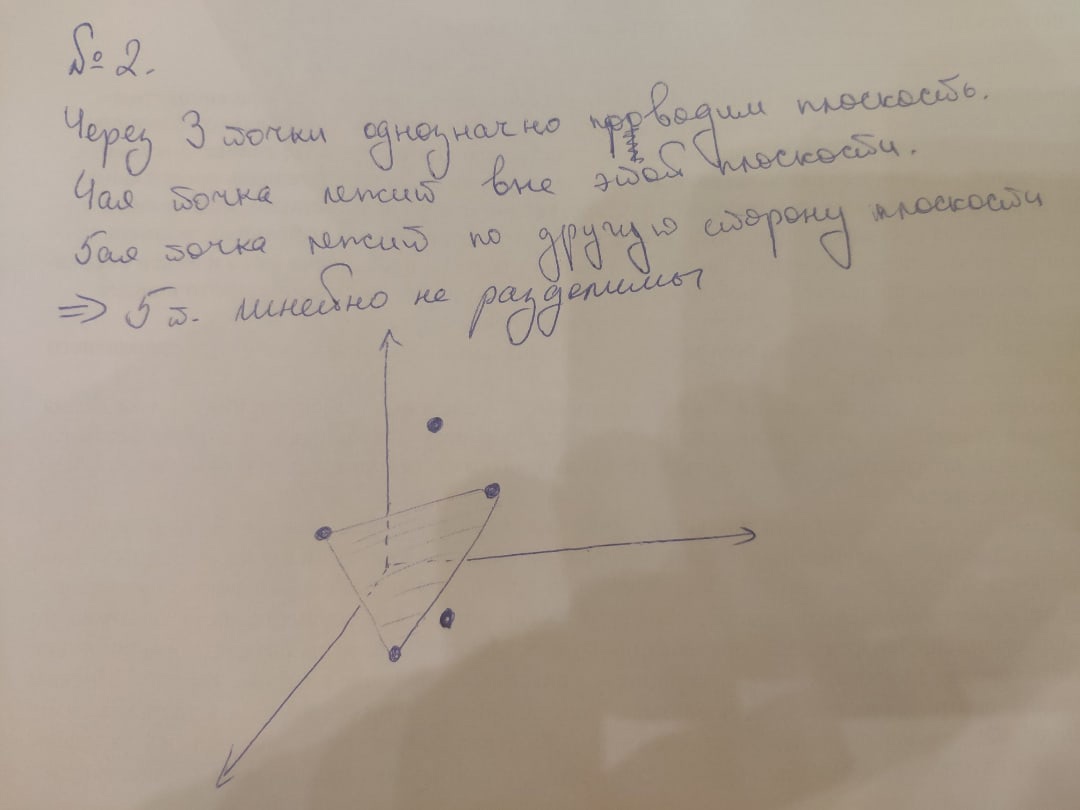 № 2.
Через 3 точки однозначно проводим плоскость.
4ая точка лежит вне этой плоскости.
5ая точка лежит по другую сторону плоскости
⇒ 5 т. линейно не разделимы